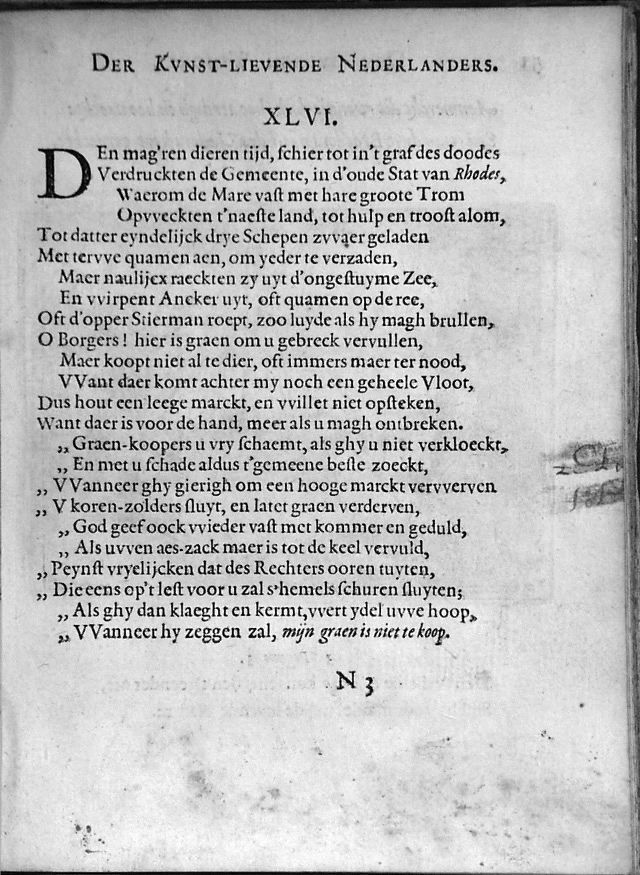 DER KVNST-LIEVENDE NEDERLANDERS.
XLVI.
DEn mag'ren dieren tijd, ſchier tot in't graf des doodes
Verdruckten de Gemeente, in d'oude Stat van Rhodes,
Waerom de Mare vaſt met hare groote Trom
Opvveckten t'naeſte land, tot hulp en trooſt alom,
Tot datter eyndelijck drye Schepen zvvaer geladen
Met tervve quamen aen, om yeder te verzaden,
Maer naulijcx raeckten zy uyt d'ongeſtuyme Zee,
En vvirpent Ancker uyt, oft quamen op de ree,
Oft d'opper Stierman roept, zoo luyde als hy magh brullen,
O Borgers! hier is graen om u gebreck vervullen,
Maer koopt niet al te dier, oft immers maer ter nood,
VVant daer komt achter my noch een geheele Vloot,
Dus hout een leege marckt, en vvillet niet opſteken,
Want daer is voor de hand, meer als u magh ontbreken.
,, Graen-koopers u vry ſchaemt, als ghy u niet verkloeckt,
,, En met u ſchade aldus t'gemeene beſte zoeckt,
,, VVanneer ghy gierigh om een hooge marckt vervverven
,, V koren-zolders ſluyt, en latet graen verderven,
,, God geef oock vvieder vaſt met kommer en geduld,
,, Als uvven aes-zack maer is tot de keel vervuld,
,, Peynſt vryelijcken dat des Rechters ooren tuyten,
,, Die eens op't leſt voor u zal s'hemels ſchuren ſluyten;
,, Als ghy dan klaeght en kermt, vvert ydel uvve hoop,
,, VVanneer hy zeggen zal, mijn graen is niet te koop.
N 3